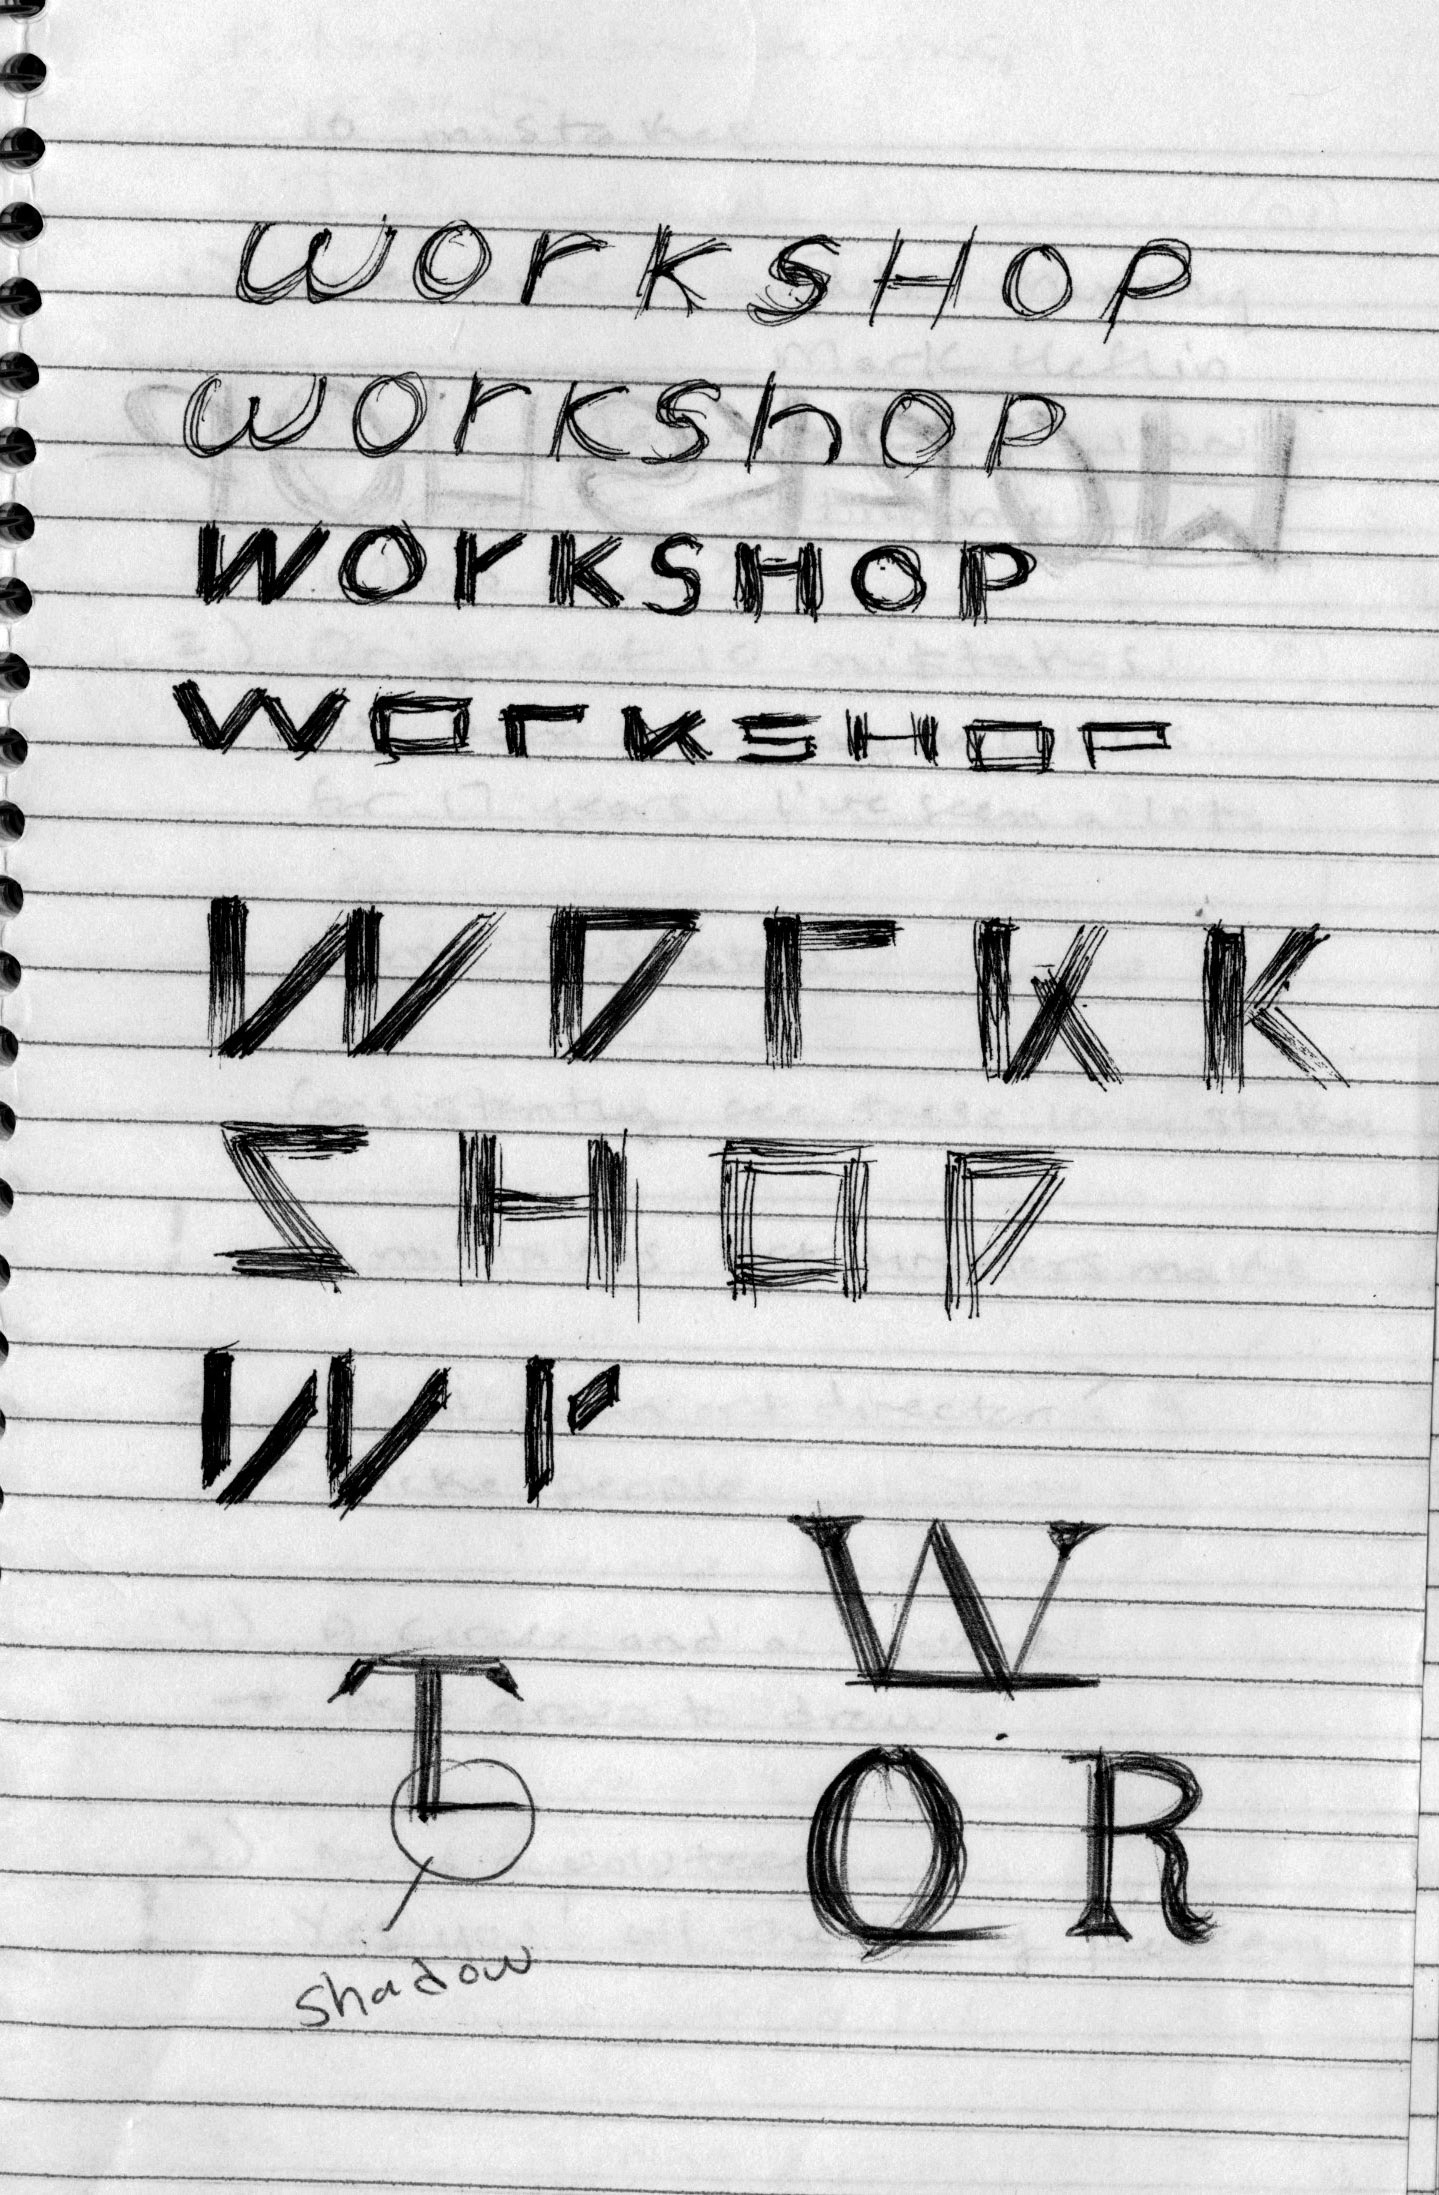 workSHOP
workshop
WOrKSHOP
WOrKSHOP
WOrKK
SHOP
Wr
W
T
OR
shadow